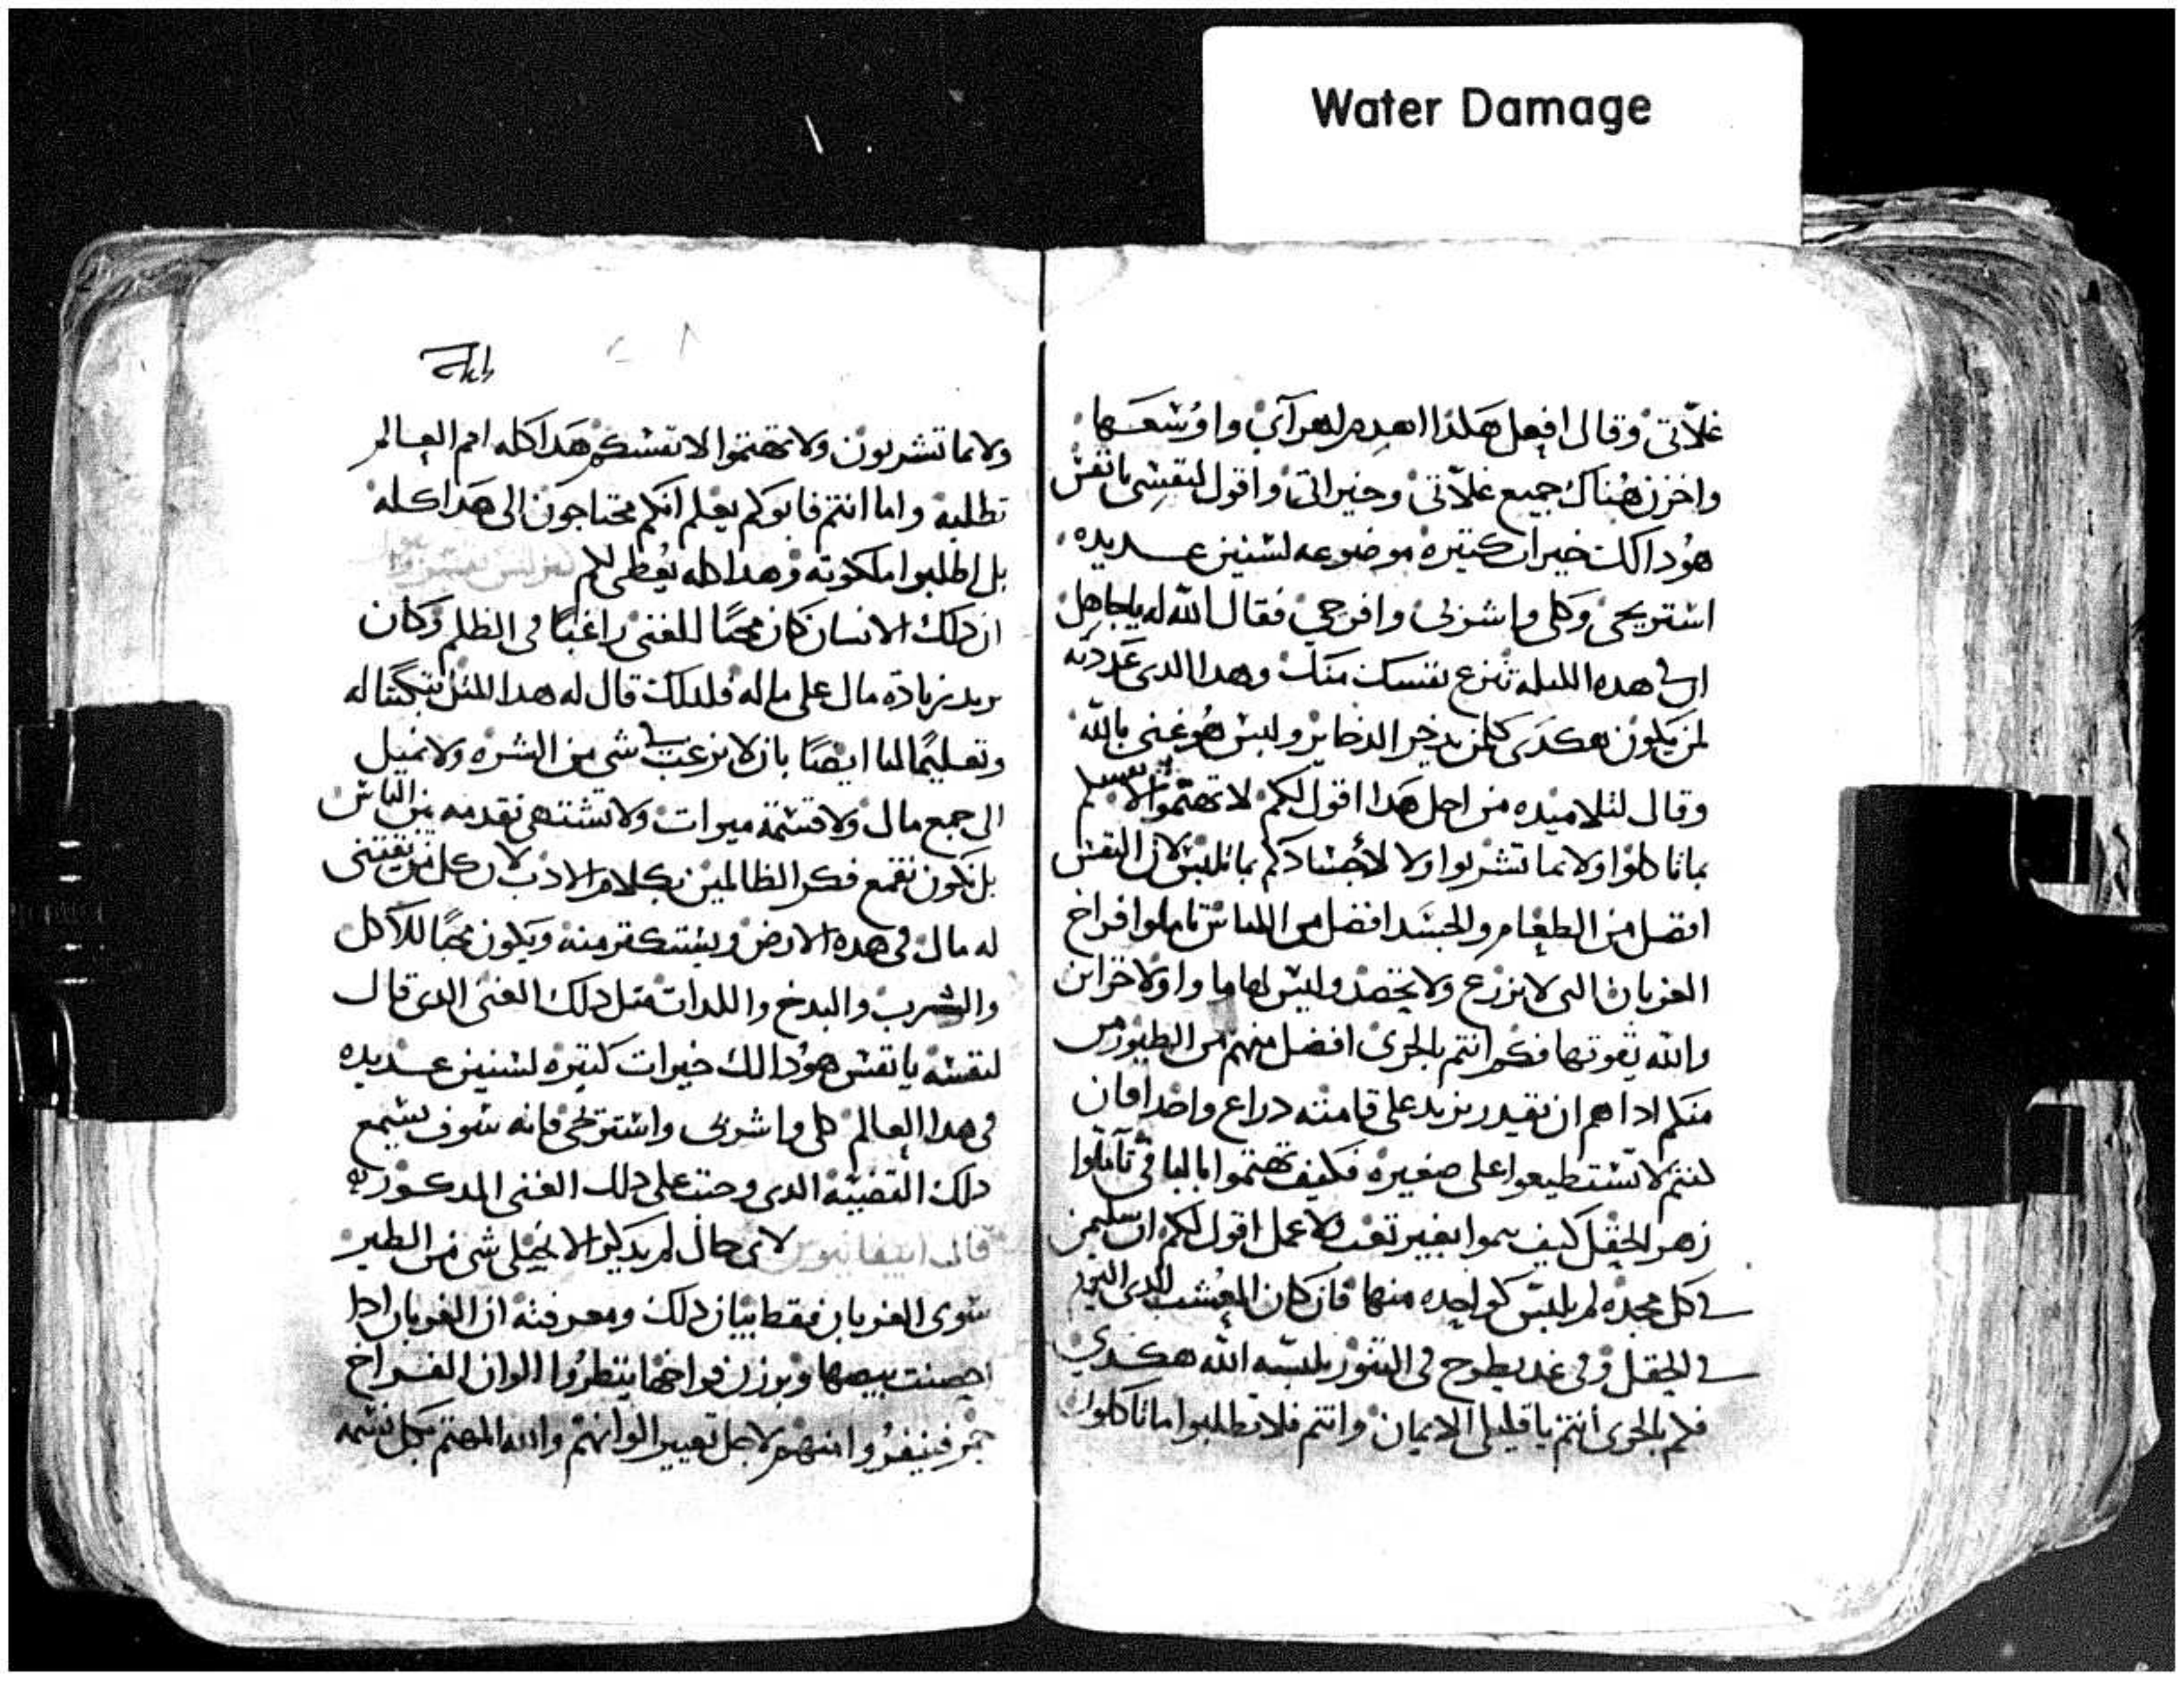 Water Damage
غلاتي وقال افعل هكذا اهدم اهرآئي واوسعها
واخزن هناك جميع غلاتي وخيراتي واقول لنفسي يا نفس
هودا لك خيرات كتيره موضوعه لسنين عديده
استريحي وكلي واشربي وافرحي فقال الله له ياجاهل
في هده الليله تنزع نفسك منك وهدا الدي عددته
لمن يكون هكدى كلمن يدخر الدخاير وليس هو غني بالله
وقال لتلاميده من اجل هدا اقول لكم لا تهتموا لانفسكم
بما تاكلوا ولا بما تشربوا ولا لأجسادكم بما تلبس لان النفس
افضل من الطعام والجسد افضل من اللباس تاملوا افراخ
الغربان التي لا تزرع ولا تحصد وليس لها ماوا ولا خزاين
والله يقوتها فكم انتم بالحرى افضل منهم من الطيور من
منكم ادا هم ان يقدر يزيد على قامته دراع واحد افان
كنتم لا تستطيعوا على صغيره فكيف تهتموا بالباقي تآملوا
زهر الحقل كيف ينموا بغير تعب ولا عمل اقول لكم ان سليمن
في كل مجده لم يلبس كواحده منها فان كان العشب الدي اليوم
في الحقل وفي غد يطرح في التنور يلبسه الله هكدي
فكم بالحرى أنتم يا قليلي الايمان وانتم فلا تطلبوا ما تاكلون
ولا ما تشربون ولا تهتموا لانفسكم هدا كله امم العالم
تطلبه واما انتم فابوكم يعلم انكم محتاجون الى هدا كله
بل اطلبوا ملكوته وهدا كله يعطى لكم
ان دلك الانسان كان محبًا للغنى راغبًا في الظلم وكان
يريد زيادة مال على ماله فلدلك قال له هدا المتل تبكيتا له
وتعليمًا لنا ايضًا بان لا نرغب في شي من الشره ولا نميل
الى جمع مال ولا قسمة ميرات ولا نشتهي تقدمه من الناس
بل نكون نقمع فكر الظالمين بكلام الادب لان كل من يقتني
له مال في هده الارض ويستكتر منه ويكون محبًا للاكل
والشرب والبدخ واللدات متل دلك الغني الدي قال
لنفسه يا نفس هودا لك خيرات كتيره لسنين عديده
في هدا العالم كلي واشربي واستريحي فانه سوف يسمع
دلك القضيه الدي وجبت على دلك الغني المدكور
قال ابيفانيوس لاي حال لم يدكر الانجيلي شي من الطير
سوى الغربان فقط بيان دلك ومعرفته ان الغربان ادا
احضنت بيضها وبرزن فراخها ينظروا الوان الفراخ
حمر فينفروا منهم لاجل تغيير الوانهم والله المهتم بكل نسمه